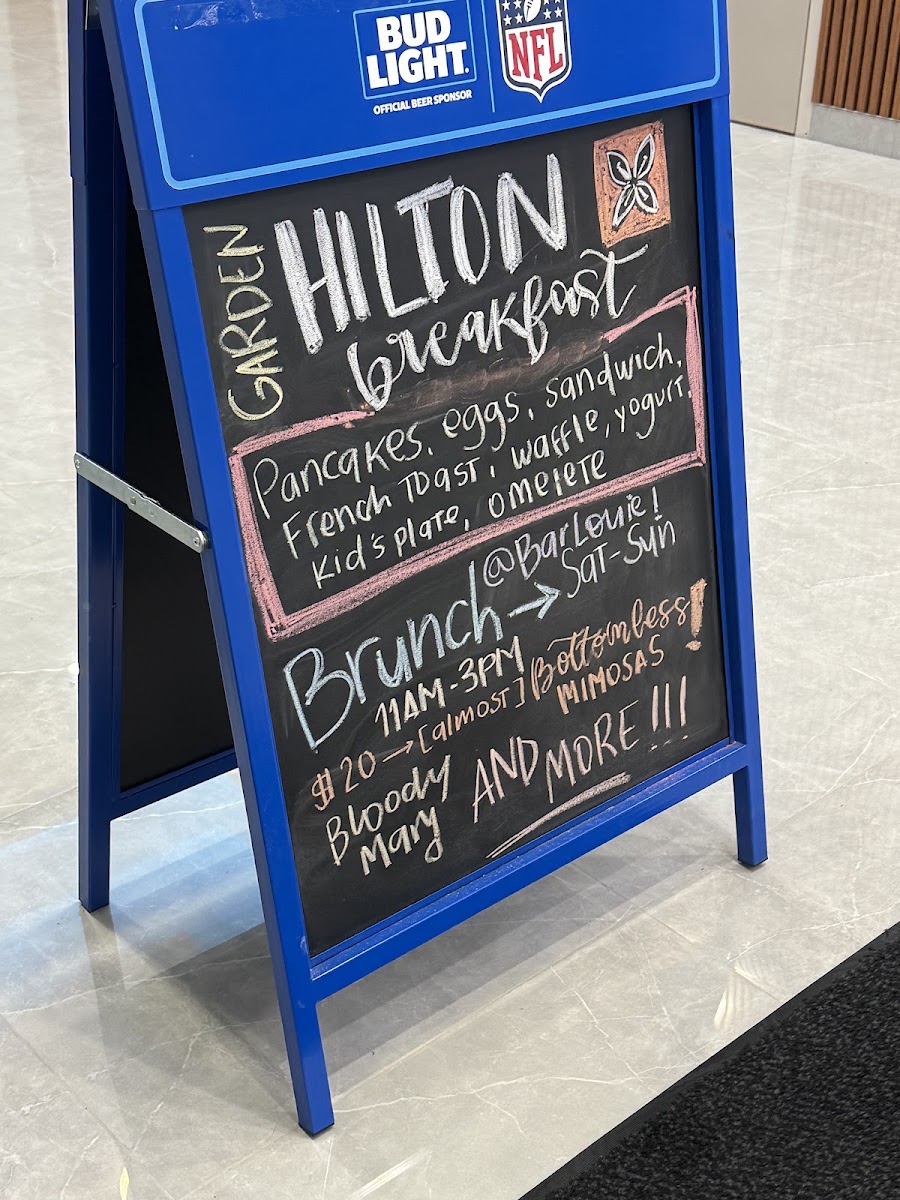 BUD
LIGHT.
OFFICIAL BEER SPONSOR
NFL
GARDEN
HILTON
breakfast
Pancakes, eggs, sandwich,
French Toast, waffle, yogurt,
Kid's plate, omelete
@BarLouie!
Brunch → Sat-Sun
11AM-3PM
$20 → [almost] Bottomless!
MIMOSAS
Bloody
Mary
AND MORE!!!